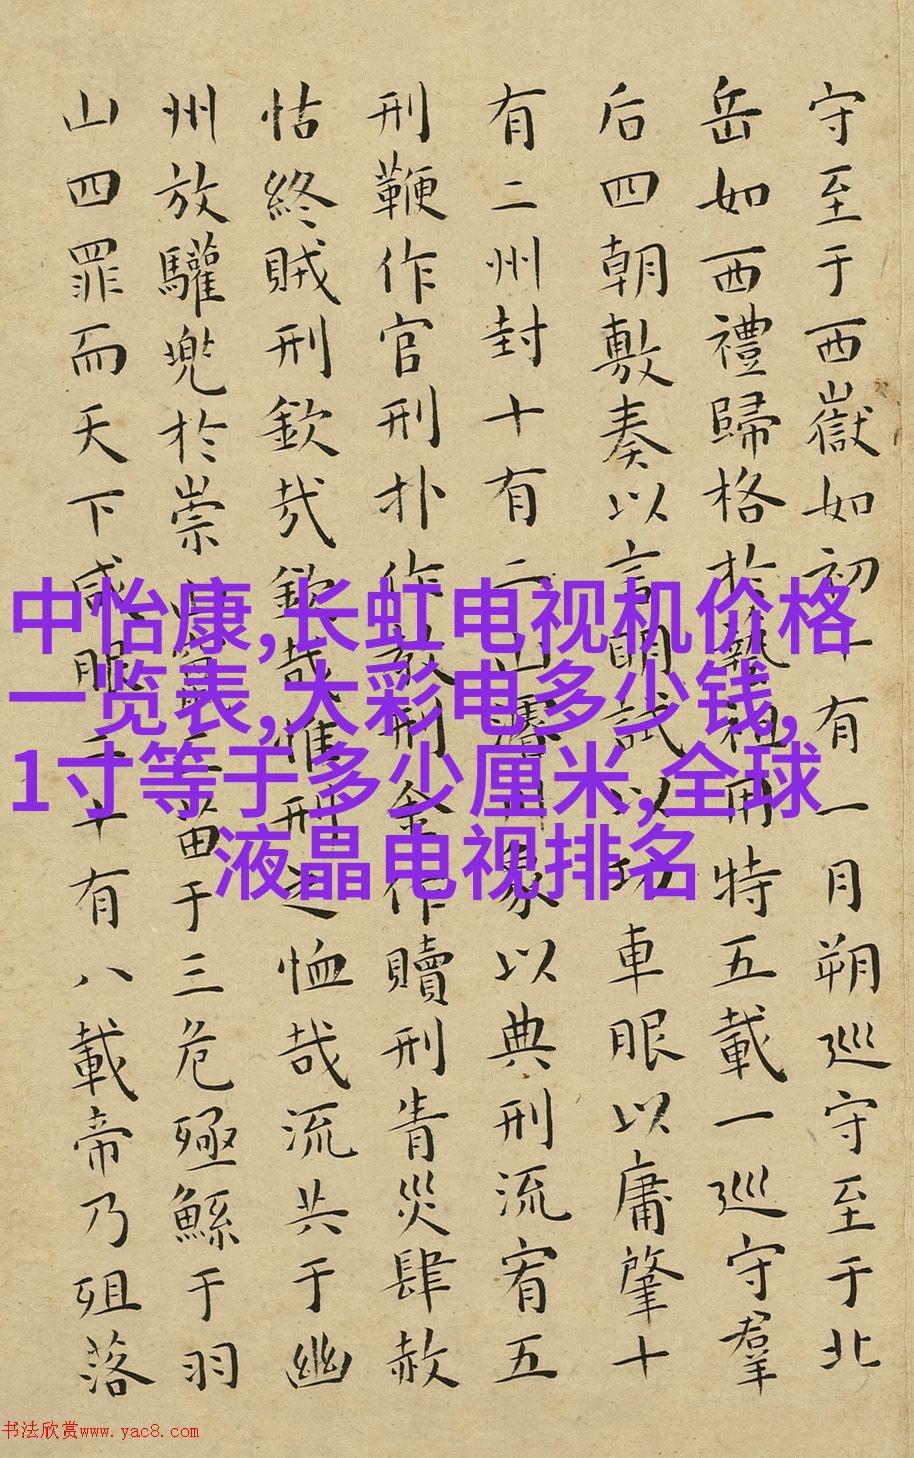 守至于西嶽如初十有一月朔巡守至于北
岳如西禮歸格於藝祖用特五載一巡守羣
后四朝敷奏以言明試以功車眼以庸肇十
有二州封十有二山濬川象以典刑流宥五
刑鞭作官刑扑作教刑金作贖刑眚災肆赦
怙終賊刑欽哉欽哉惟刑之恤哉流共于幽
州放驩兜於崇山竄三苗于三危殛鯀于羽
山四罪而天下咸服二十有八載帝乃殂落
中怡康,长虹电视机价格
一览表,大彩电多少钱,
1寸等于多少厘米,全球
液晶电视排名
书法欣赏www.yac8.com